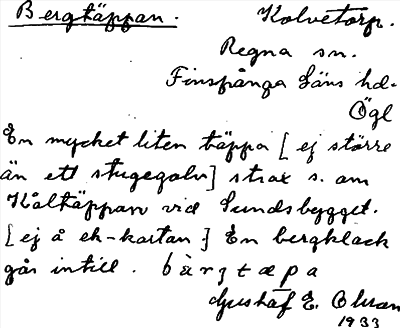 Bergtäppan. Kolvetorp.
Regna sn.
Finspånga läns hd.
Ögl
En mycket liten täppa [ej större
än ett stugegolv] strax s. om
Kåltäppan vid Sundsbygget.
[ej å ek-kartan.] En bergklack
går intill. bàrʒtæpa
Gustaf E. Olsson
1933